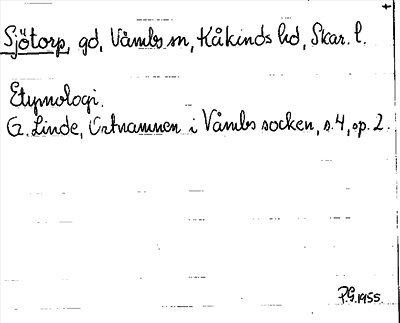 Sjötorp, gd, Våmbs sn, Kåkinds hd, Skar. l.
Etymologi.
G. Linde, Ortnamnen i Våmbs socken, s. 4, sp. 2.
P.G. 1955.